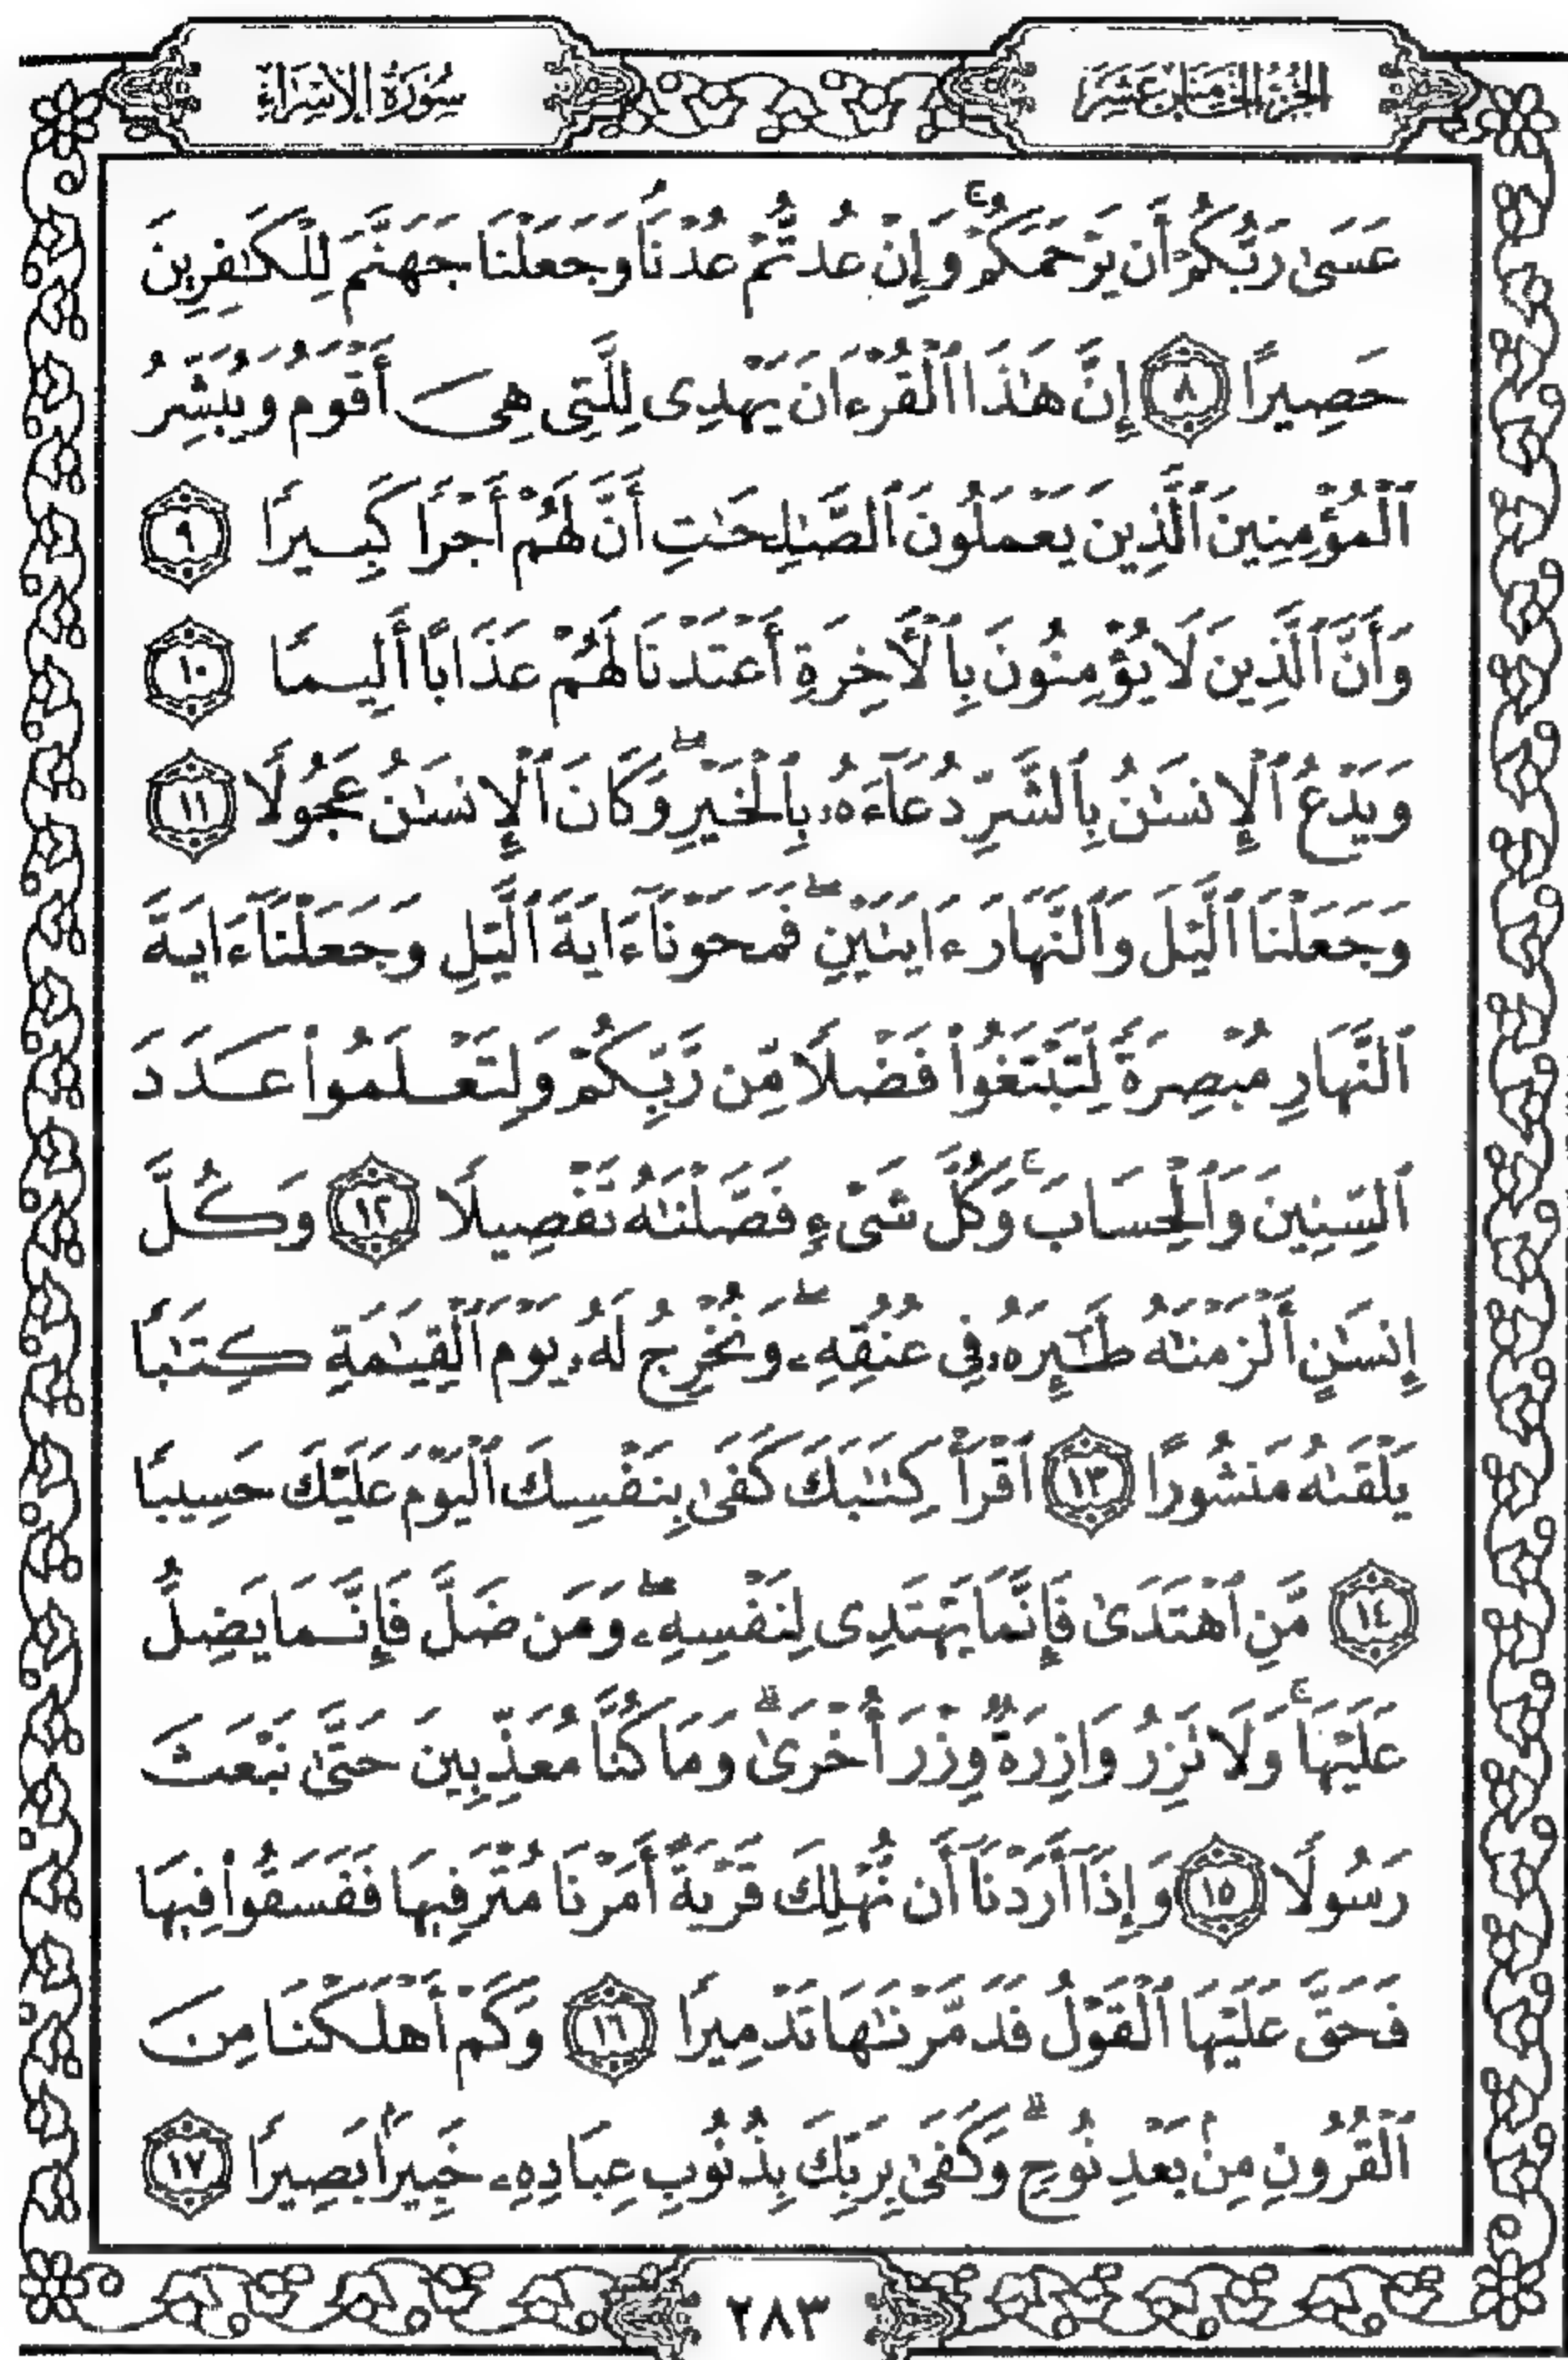 الجزء الخامس عشر
سورة الإسراء
عَسَىٰ رَبُّكُمْ أَن يَرْحَمَكُمْ ۚ وَإِنْ عُدتُّمْ عُدْنَا ۘ وَجَعَلْنَا جَهَنَّمَ لِلْكَـٰفِرِينَ
حَصِيرًا ٨ إِنَّ هَـٰذَا ٱلْقُرْءَانَ يَهْدِى لِلَّتِى هِىَ أَقْوَمُ وَيُبَشِّرُ
ٱلْمُؤْمِنِينَ ٱلَّذِينَ يَعْمَلُونَ ٱلصَّـٰلِحَـٰتِ أَنَّ لَهُمْ أَجْرًا كَبِيرًا ٩
وَأَنَّ ٱلَّذِينَ لَا يُؤْمِنُونَ بِٱلْأَخِرَةِ أَعْتَدْنَا لَهُمْ عَذَابًا أَلِيمًا ١٠
وَيَدْعُ ٱلْإِنسَـٰنُ بِٱلشَّرِّ دُعَآءَهُۥ بِٱلْخَيْرِ ۖ وَكَانَ ٱلْإِنسَـٰنُ عَجُولًا ١١
وَجَعَلْنَا ٱلَّيْلَ وَٱلنَّهَارَ ءَايَتَيْنِ ۖ فَمَحَوْنَآ ءَايَةَ ٱلَّيْلِ وَجَعَلْنَآ ءَايَةَ
ٱلنَّهَارِ مُبْصِرَةً لِّتَبْتَغُوا۟ فَضْلًا مِّن رَّبِّكُمْ وَلِتَعْلَمُوا۟ عَدَدَ
ٱلسِّنِينَ وَٱلْحِسَابَ ۚ وَكُلَّ شَىْءٍ فَصَّلْنَـٰهُ تَفْصِيلًا ١٢ وَكُلَّ
إِنسَـٰنٍ أَلْزَمْنَـٰهُ طَـٰٓئِرَهُۥ فِى عُنُقِهِۦ ۖ وَنُخْرِجُ لَهُۥ يَوْمَ ٱلْقِيَـٰمَةِ كِتَـٰبًا
يَلْقَىٰهُ مَنشُورًا ١٣ ٱقْرَأْ كِتَـٰبَكَ كَفَىٰ بِنَفْسِكَ ٱلْيَوْمَ عَلَيْكَ حَسِيبًا
١٤ مَّنِ ٱهْتَدَىٰ فَإِنَّمَا يَهْتَدِى لِنَفْسِهِۦ ۖ وَمَن ضَلَّ فَإِنَّمَا يَضِلُّ
عَلَيْهَا ۚ وَلَا تَزِرُ وَازِرَةٌ وِزْرَ أُخْرَىٰ ۗ وَمَا كُنَّا مُعَذِّبِينَ حَتَّىٰ نَبْعَثَ
رَسُولًا ١٥ وَإِذَآ أَرَدْنَآ أَن نُّهْلِكَ قَرْيَةً أَمَرْنَا مُتْرَفِيهَا فَفَسَقُوا۟ فِيهَا
فَحَقَّ عَلَيْهَا ٱلْقَوْلُ فَدَمَّرْنَـٰهَا تَدْمِيرًا ١٦ وَكَمْ أَهْلَكْنَا مِنَ
ٱلْقُرُونِ مِنۢ بَعْدِ نُوحٍ ۗ وَكَفَىٰ بِرَبِّكَ بِذُنُوبِ عِبَادِهِۦ خَبِيرًۢا بَصِيرًا ١٧
٢٨٣